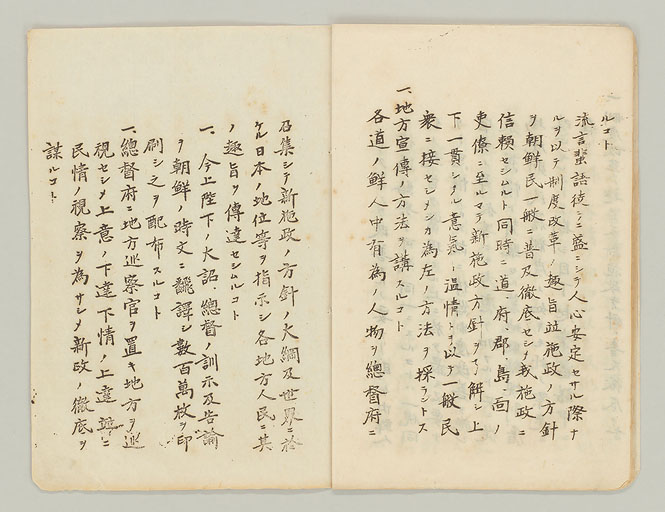 ルコト
流言蜚語徒ラニ盛ニシテ人心安定セサル際ナ
ルヲ以テ制度改革ノ趣旨並施政ノ方針
ヲ朝鮮民一般ニ普及徹底セシメ我施政ニ
信頼セシムルト同時ニ道、府、郡、島、面ノ
吏僚ニ至ルマテ新施政方針ヲ了解シ上
下一貫シタル意氣ト温情トヲ以テ一般民
衆ニ接セシメンカ為左ノ方法ヲ採ラントス
一、地方宣傳ノ方法ヲ講スルコト
各道ノ鮮人中有為ノ人物ヲ總督府ニ
召集シテ新施政ノ方針ノ大綱及世界ニ於
ケル日本ノ地位等ヲ指示シ各地方人民ニ其
ノ趣旨ヲ傳達セシムルコト
一、今上陛下ノ大詔、總督ノ訓示及告諭
ヲ朝鮮ノ時文ニ飜譯シ數百萬枚ヲ印
刷シ之ヲ配布スルコト
一、總督府ニ地方巡察官ヲ置キ地方ヲ巡
視セシメ上意ノ下達下情ノ上達並ニ
民情ノ視察ヲ為サシメ新政ノ徹底ヲ
謀ルコト